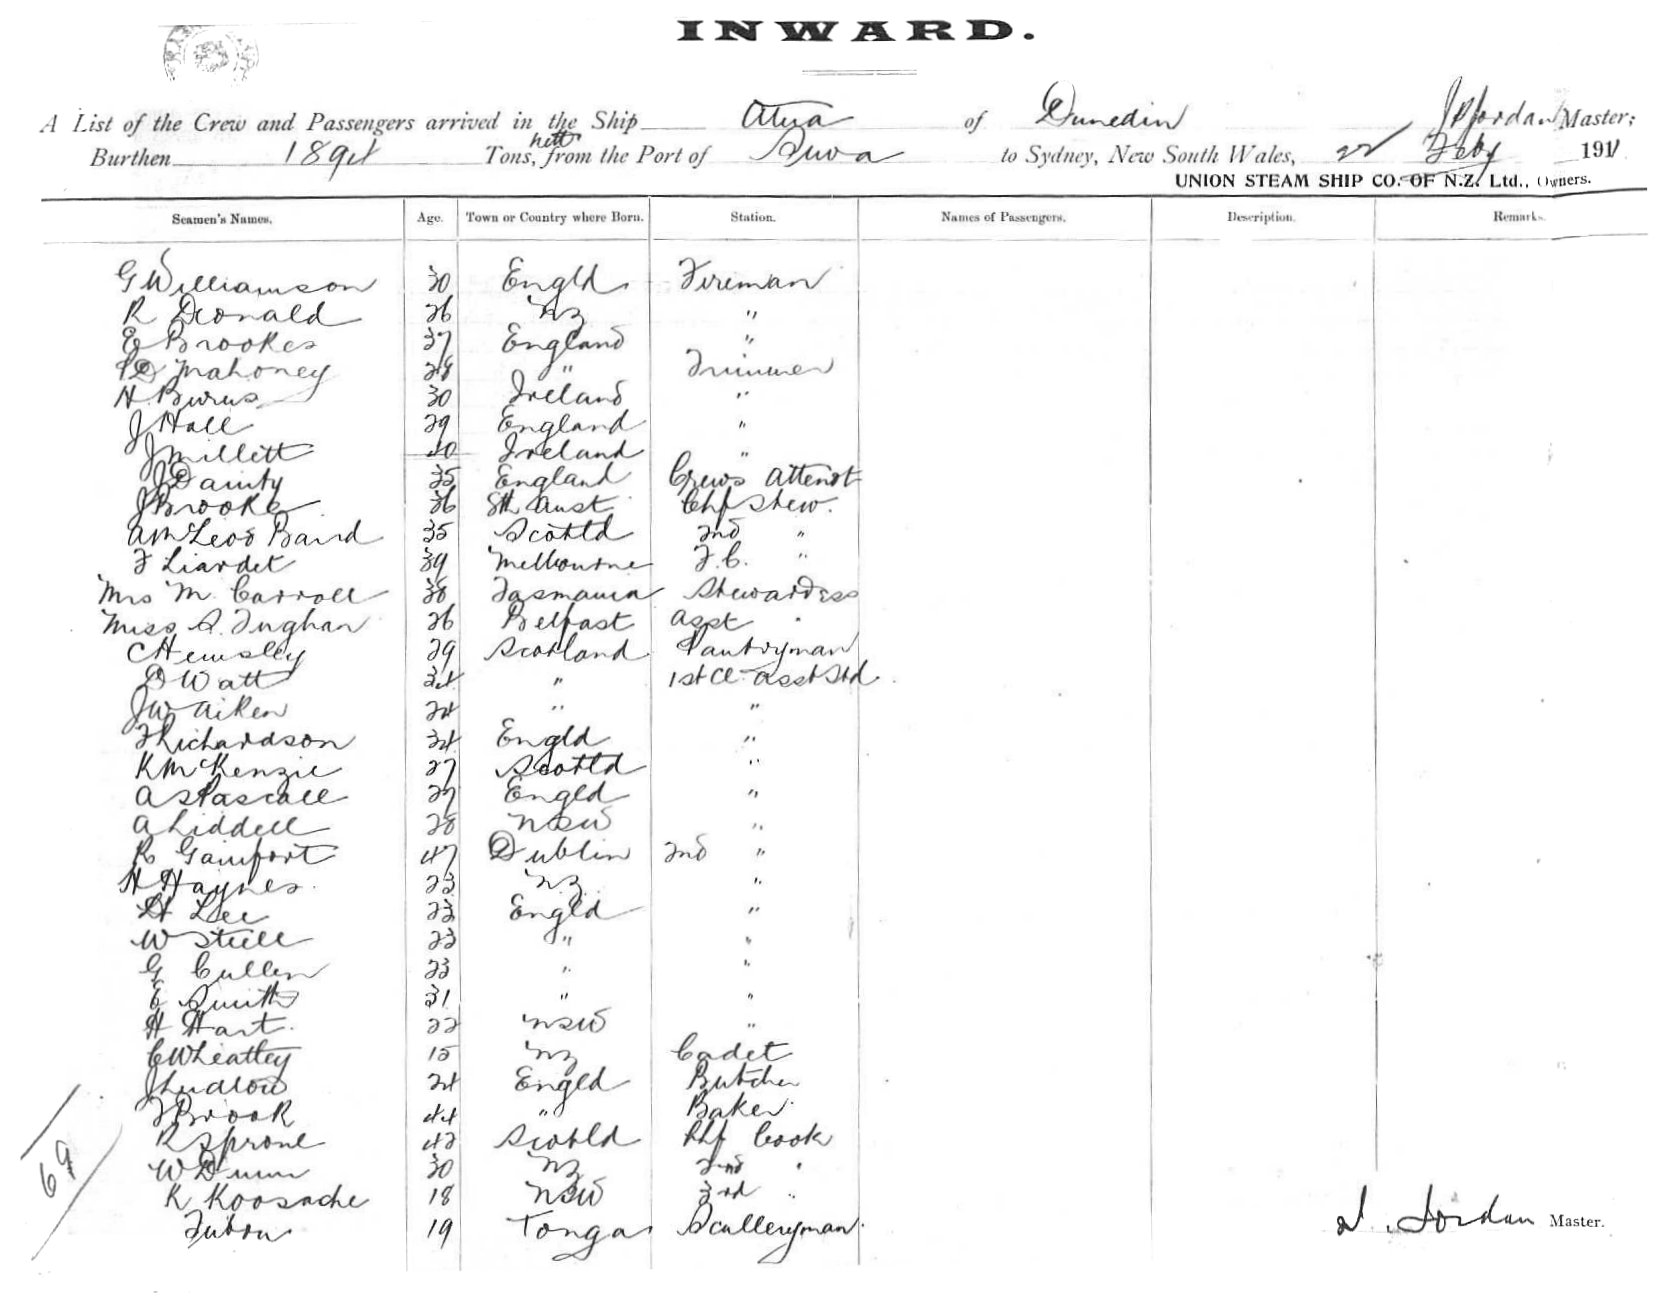 INWARD.
A List of the Crew and Passengers arrived in the Ship Atua of Dunedin Jordan Master;
Burthen 1894 Tons, nett from the Port of Suva to Sydney, New South Wales, 22 Feby 1911
UNION STEAM SHIP CO. OF N.Z. Ltd., Owners.
Seamen's Names. Age. Town or Country where Born. Station. Names of Passengers. Description. Remarks.
G Williamson 30 Engld Fireman
R Donald 26 NZ "
E Brookes 37 England "
Mahoney 28 " Trimmer
H. Burns 30 Ireland "
J Hall 29 England "
J Millett 40 Ireland "
J Dainty 35 England Crews Attendt
J Brooke 36 Sth Aust Chf Stew.
A McLeod Baird 35 Scotld 2nd "
F Liardet 39 Melbourne F.C. "
Mrs M. Carroll 38 Tasmania Stewardess
Miss S. Tughan 26 Belfast Asst "
C Hemsley 29 Scotland Pantryman
D Watt 34 " 1st Cl Asst Std
J W Aiken 24 " "
F Richardson 34 Engld "
K McKenzie 27 Scotld "
A S Pascall 27 Engld "
A Liddell 28 NSW "
R Gainfort 47 Dublin 2nd "
H Haynes 23 N.Z. "
H Lee 23 Engld "
W Steele 23 " "
G Cullen 23 " "
E Smith 31 " "
H Hart 22 NSW "
C Wheatley 15 NZ Cadet
J Ludlow 24 Engld Butcher
F Brook 44 " Baker
R Sproul 42 Scotld Chf Cook
W Dunn 30 NZ 2nd "
K Koosache 18 NSW 3rd "
Tubou 19 Tonga Sculleryman
69
J. Jordan Master.